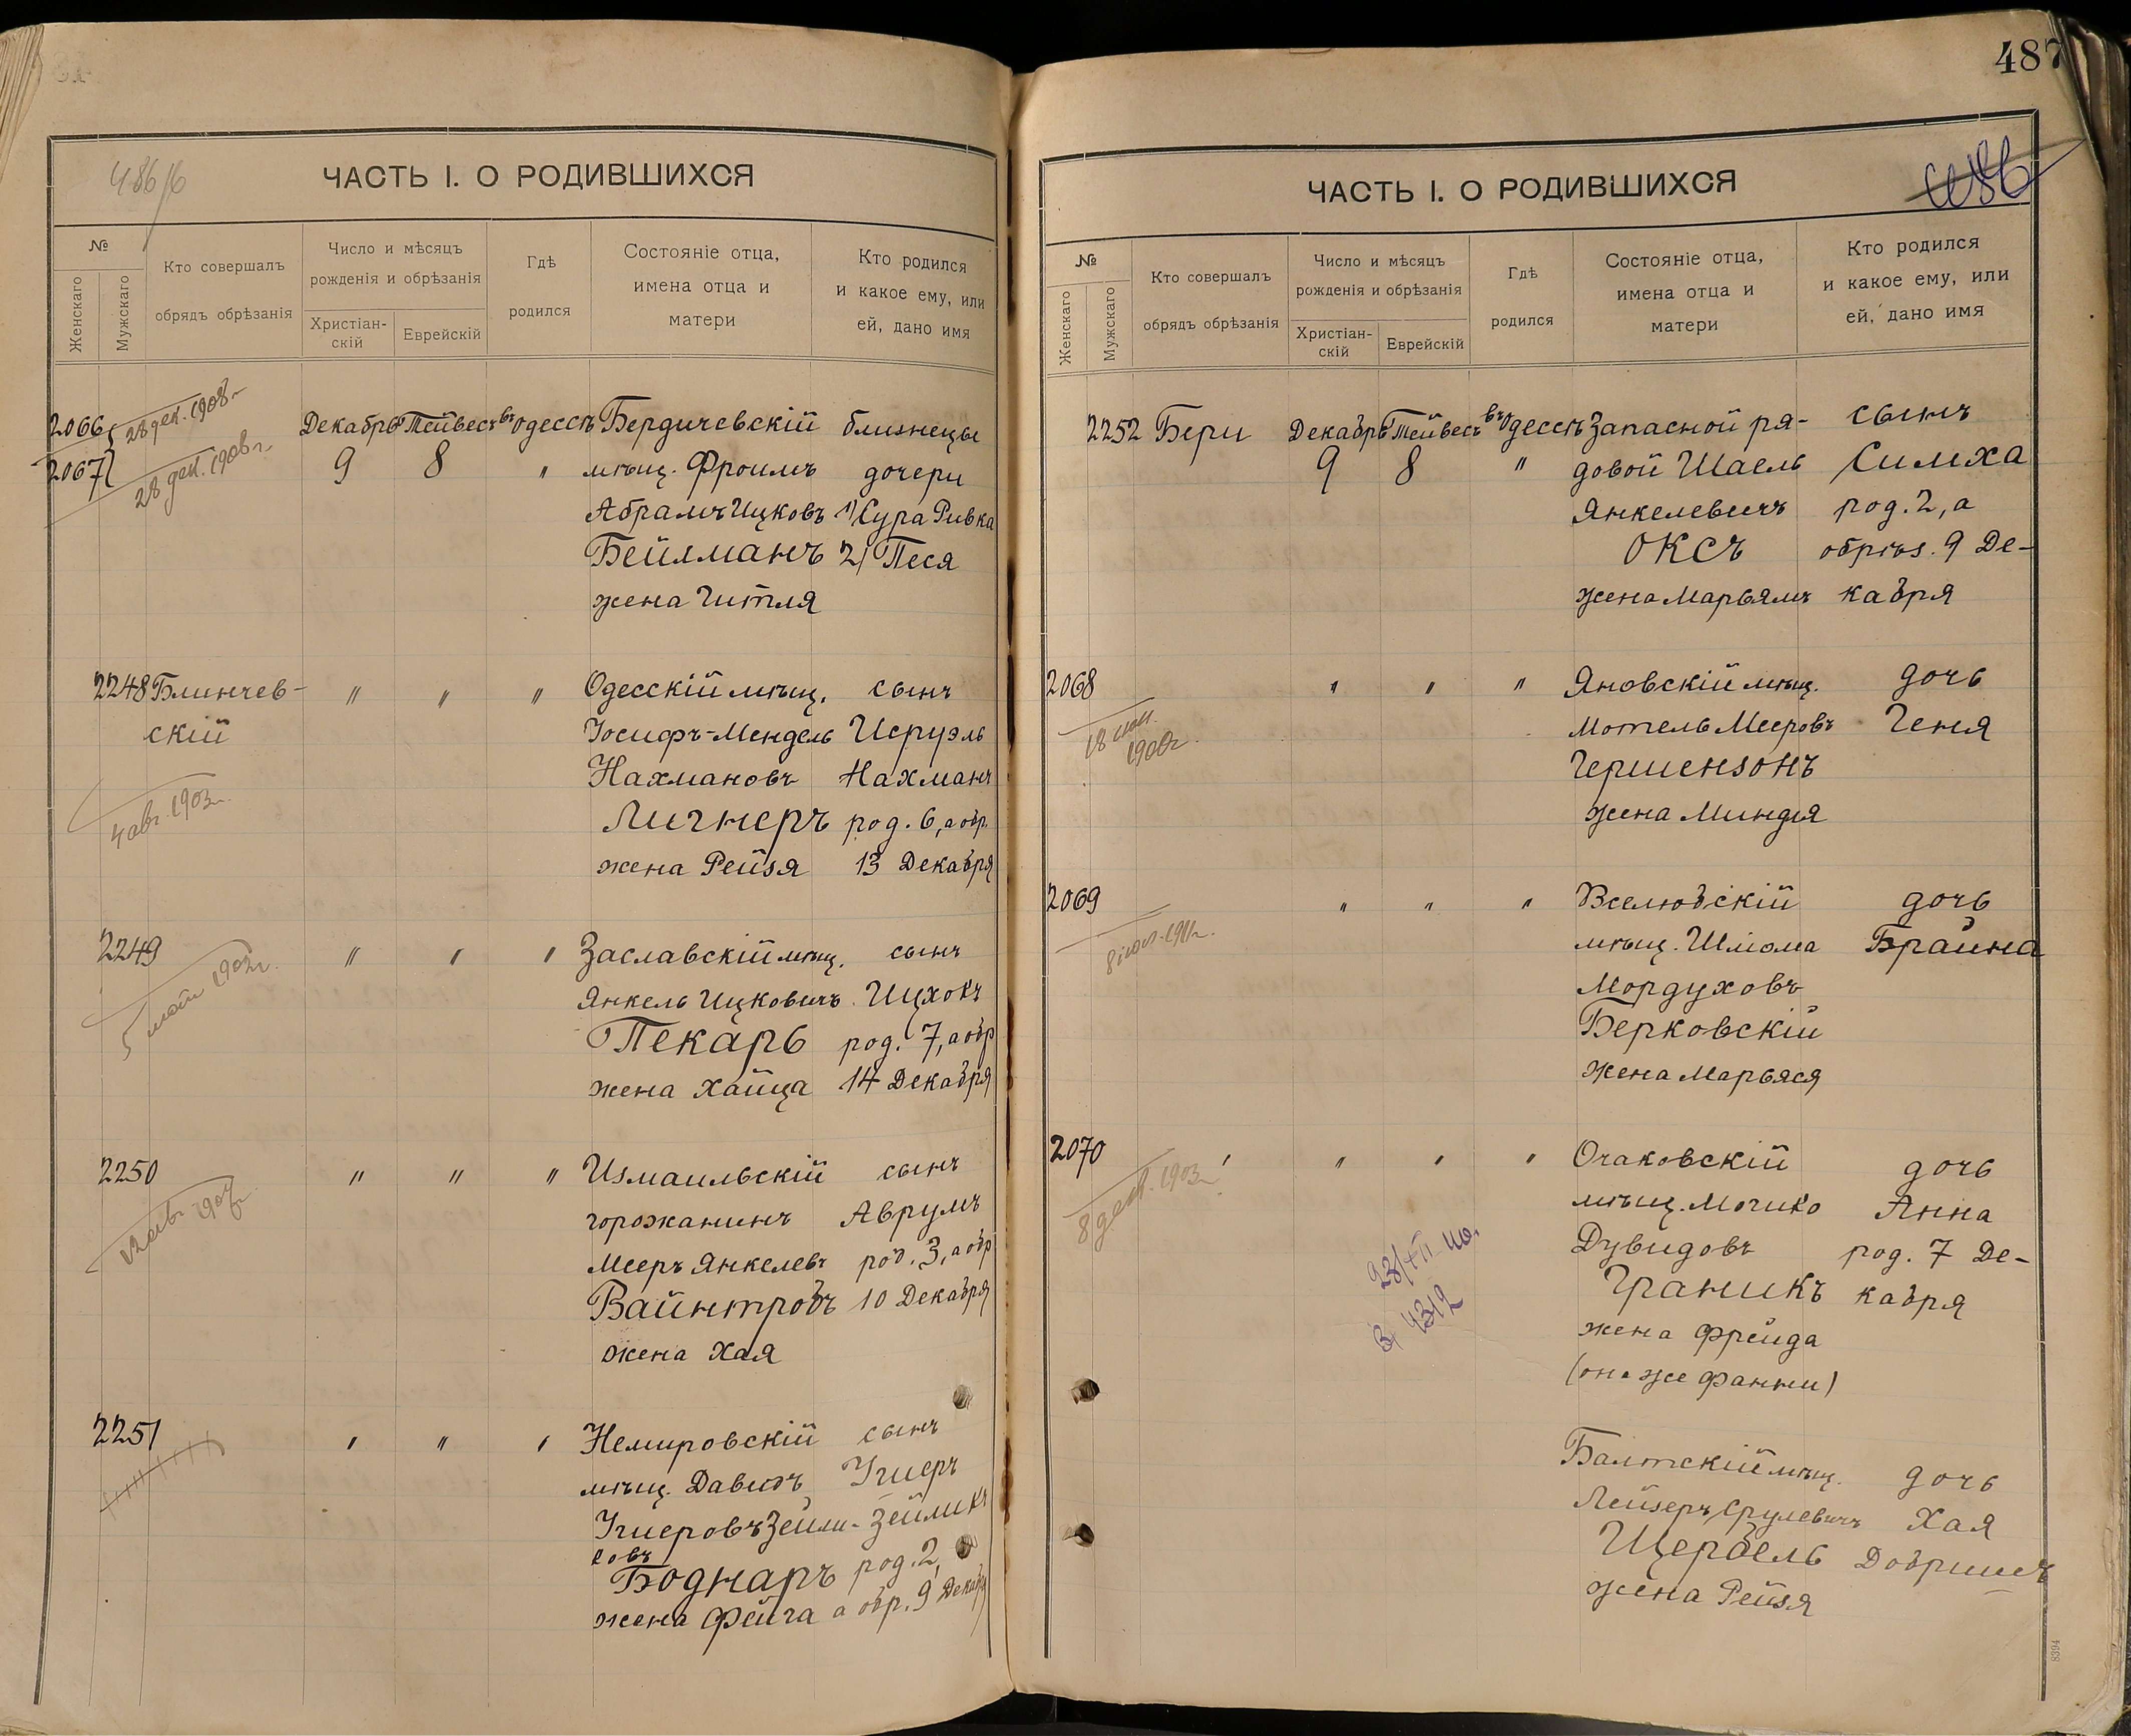 487
486/б
ЧАСТЬ I. О РОДИВШИХСЯ
№
Женскаго
Мужскаго
Кто совершалъ
обрядъ обрѣзанія
Число и мѣсяцъ
рожденія и обрѣзанія
Христіан-
скій
Еврейскій
Гдѣ
родился
Состояніе отца,
имена отца и
матери
Кто родился
и какое ему, или
ей, дано имя
2066 28 дек. 1908 г. Декабрь Тейвесъ въ Одессѣ Бердичевскій близнецы
2067 28 дек. 1908 г. 9 8 " мѣщ. Фроимъ дочери
Абрамъ Ицковъ 1) Сура Ривка
Бейлманъ 2) Песя
жена Гитля
2248 Блинчев- " " " Одесскій мѣщ. сынъ
скій Іосифъ-Мендель Исруэль
Нахмановъ Нахманъ
4 авг. 1903 г. Лигнеръ род. 6, а обр.
жена Рейзя 13 Декабря
2249 " " " Заславскій мѣщ. сынъ
5 1902 г. Янкель Ицковичъ Ицхокъ
Пекарь род. 7, а обр
жена Хайца 14 Декабря
2250 " " " Измаильскій сынъ
горожанинъ Аврумъ
Мееръ Янкелевъ род. 3, а обр
Вайнтробъ 10 Декабря
жена Хая
2251 " " " Немировскій сынъ
мѣщ. Давидъ Ушеръ
Ушеровъ Зейли- Зейликъ
ковъ
Боднаръ род. 2,
жена Фейга а обр. 9 Декабря
ЧАСТЬ I. О РОДИВШИХСЯ
№
Женскаго
Мужскаго
Кто совершалъ
обрядъ обрѣзанія
Число и мѣсяцъ
рожденія и обрѣзанія
Христіан-
скій
Еврейскій
Гдѣ
родился
Состояніе отца,
имена отца и
матери
Кто родился
и какое ему, или
ей, дано имя
2252 Бери Декабрь Тейвесъ въ Одессѣ Запасной ря- сынъ
9 8 " довой Шаель Симха
Янкелевичъ род. 2, а
Оксъ обрѣз. 9 Де-
жена Марьямъ кабря
2068 " " " Яновскій мѣщ. дочь
18 Мотель Мееровъ Геня
Гершензонъ
жена Миндля
2069 " " " Вселюбскій дочь
1911 г. мѣщ. Шлиома Брайна
Мордуховъ
Берковскій
жена Марьяся
2070 " " " Очаковскій дочь
8 дек. 1903 г. мѣщ. Мошко Анна
Дувидовъ род. 7 Де-
Граникъ кабря
жена Фрейда
(она же Фанни)
4312
Балтскій мѣщ. дочь
Лейзеръ Срулевичъ Хая
Щербель Добришъ
жена Рейзя
8394